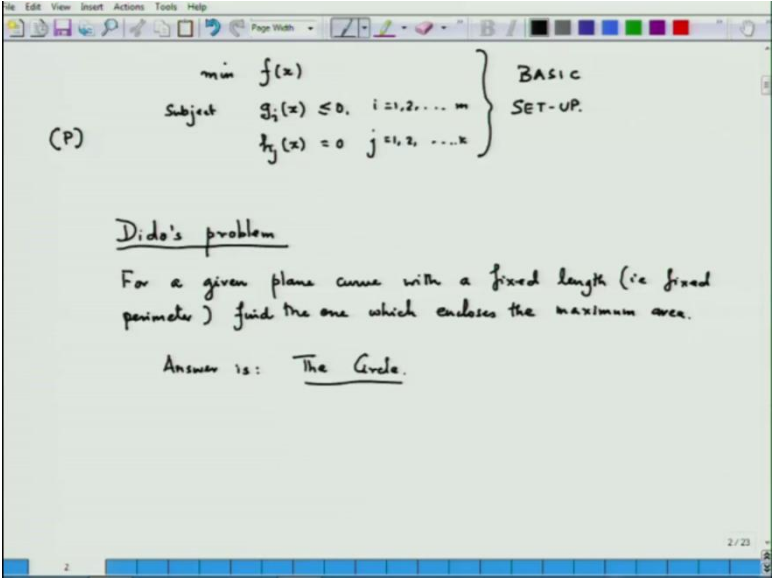 File Edit View Insert Actions Tools Help
Page Width
min f(x)
Subject g_i(x) ≤ 0, i=1,2,.... m
(P) h_j(x) = 0 j=1,2, ....k
BASIC
SET-UP.
Dido's problem
For a given plane curve with a fixed length (ie fixed
perimeter) find the one which encloses the maximum area.
Answer is: The Circle.
2/23
2